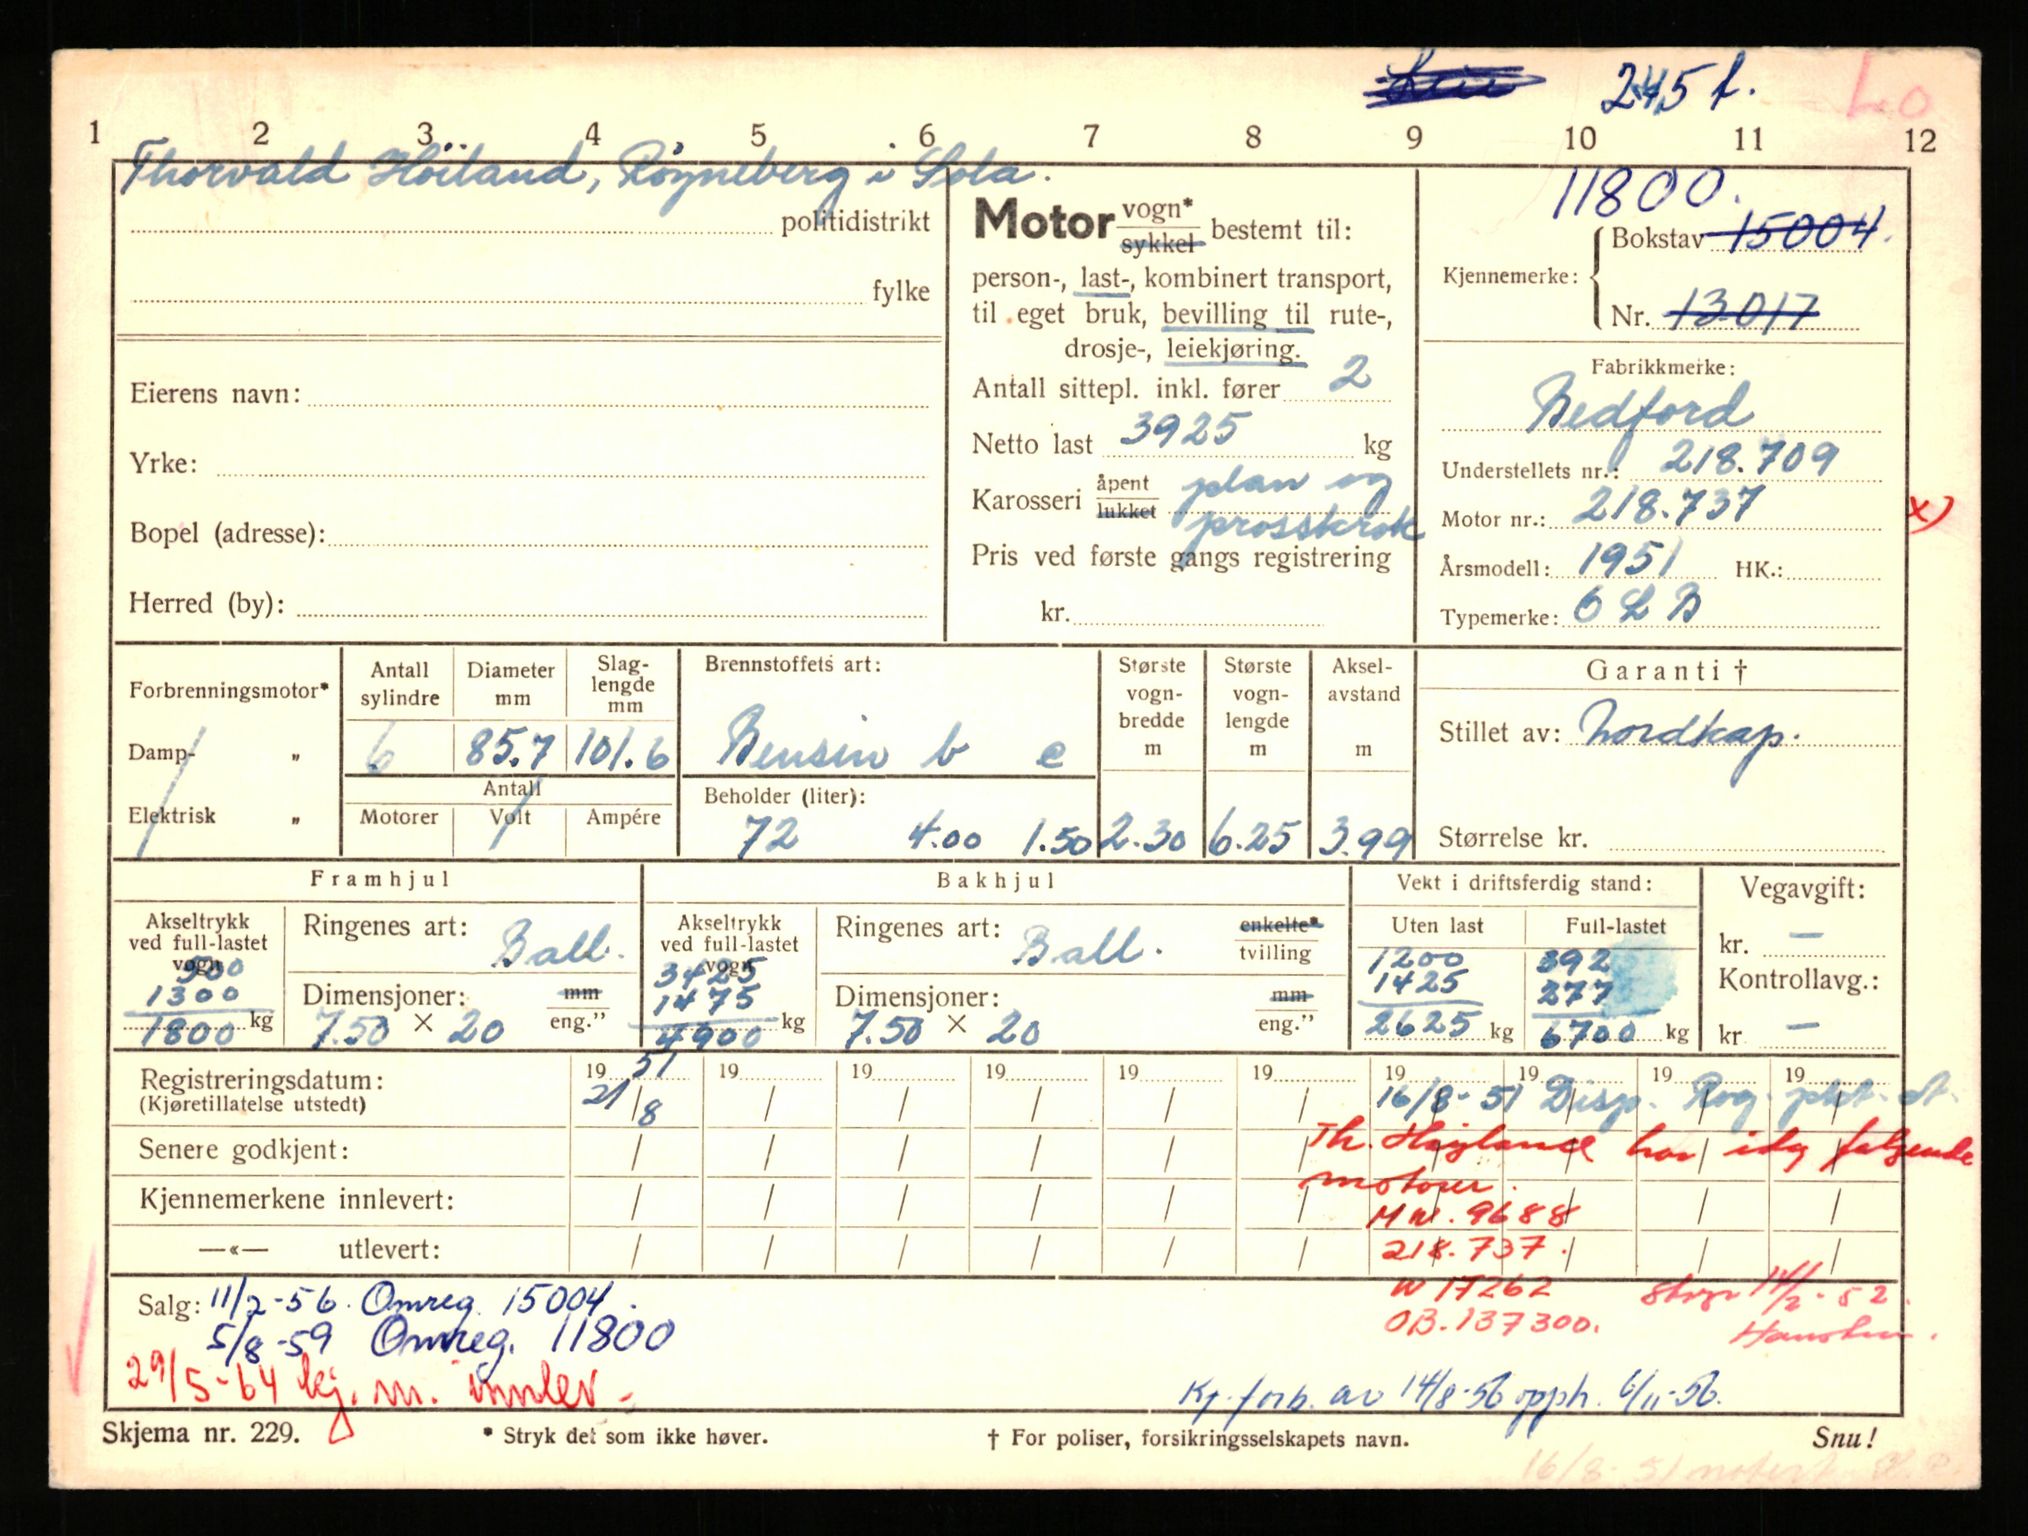 245 f. Lo
1 2 3 4 5 6 7 8 9 10 11 12
Thorvald Höiland, Røyneberg i Sola.
politidistrikt
fylke
Eierens navn:
Yrke:
Bopel (adresse):
Herred (by):
Motor vogn* sykkel bestemt til:
person-, last-, kombinert transport,
til eget bruk, bevilling til rute-,
drosje-, leiekjøring.
Antall sittepl. inkl. fører 2
Netto last 3925 kg
Karosseri åpent lukket plan og
prosskrok
Pris ved første gangs registrering
kr.
11800.
Kjennemerke: Bokstav 15004.
Nr. 13017
Fabrikkmerke:
Bedford
Understellets nr.: 218.709
Motor nr.: 218.737 x)
Årsmodell: 1951 HK.:
Typemerke: 6 L B
Forbrenningsmotor*
Damp- „
Elektrisk „
Antall sylindre 6
Diameter mm 85.7
Slaglengde mm 101.6
Antall
Motorer Volt Ampére
Brennstoffets art:
Bensin b e
Beholder (liter):
72 4.00 1.50
Største vognbredde m 2.30
Største vognlengde m 6.25
Akselavstand m 3.99
Garanti †
Stillet av: Nordkap.
Størrelse kr.
Framhjul
Akseltrykk ved full-lastet vogn
500
1300
1800 kg
Ringenes art: Ball.
Dimensjoner: mm eng.”
7.50 × 20
Bakhjul
Akseltrykk ved full-lastet vogn
3425
1475
4900 kg
Ringenes art: Ball. enkelte* tvilling
Dimensjoner: mm eng.”
7.50 × 20
Vekt i driftsferdig stand:
Uten last
1200
1425
2625 kg
Full-lastet
392
277
6700 kg
Vegavgift:
kr. —
Kontrollavg.:
kr —
Registreringsdatum: 19 51 19 19 19 19 19 19 19 19 19
(Kjøretillatelse utstedt) 21/8 16/8-51 Disp. Rog. pkt. st.
Senere godkjent: Th. Høyland har idag følgende
motorer.
Kjennemerkene innlevert: M W. 9688
—«— utlevert: 218.737.
W 17262
OB. 137300.
14/2-52.
Salg: 11/2-56. Omreg. 15004.
5/8-59 Omreg. 11800
29/5-64 kj. m. innlev.
Kj. forb. av 14/8-56 opph. 6/11-56.
Skjema nr. 229.
* Stryk det som ikke høver.
† For poliser, forsikringsselskapets navn.
Snu!
16/8-51 notert